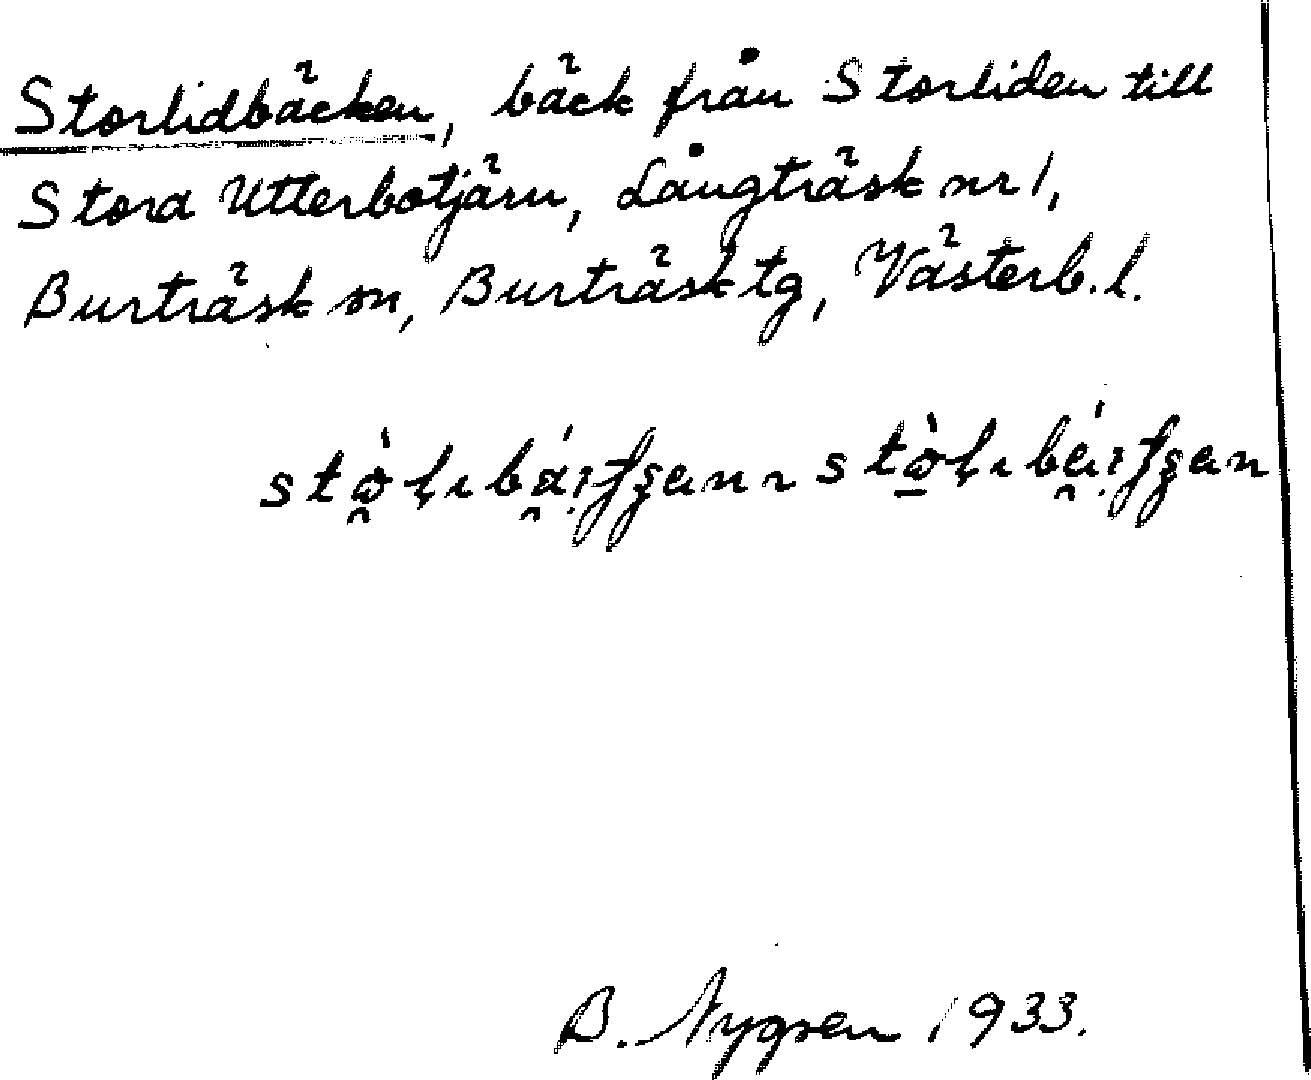 Storlidbäcken, bäck från Storliden till
Stora Utterbotjärn, Långträsk nr 1,
Burträsk sn, Burträsk tg, Västerb. l.
B. Nygren 1933.